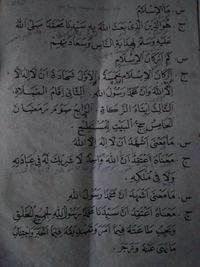 س. ما الإسلام
ج. هو الدين الذي بعث الله به سيدنا محمدا صلى الله
عليه وسلم لهداية الناس وسعادتهم
س. كم أركان الإسلام
ج. أركان الإسلام خمسة الأول شهادة أن لا إله إلا
الله وأن محمدا رسول الله. الثاني إقام الصلاة.
الثالث إيتاء الزكاة. الرابع صوم رمضان
الخامس حج البيت للمستطيع
س. ما معنى أشهد أن لا إله إلا الله
ج. معناه أعتقد أن الله واحد لا شريك له في عبادته
ولا في ملكه.
س. ما معنى أشهد أن محمدا رسول الله
ج. معناه أعتقد أن سيدنا محمدا رسول الله لجميع الخلق
وتجب طاعته فيما أمر وتصديقه فيما أخبر واجتناب
ما نهى عنه وزجر.